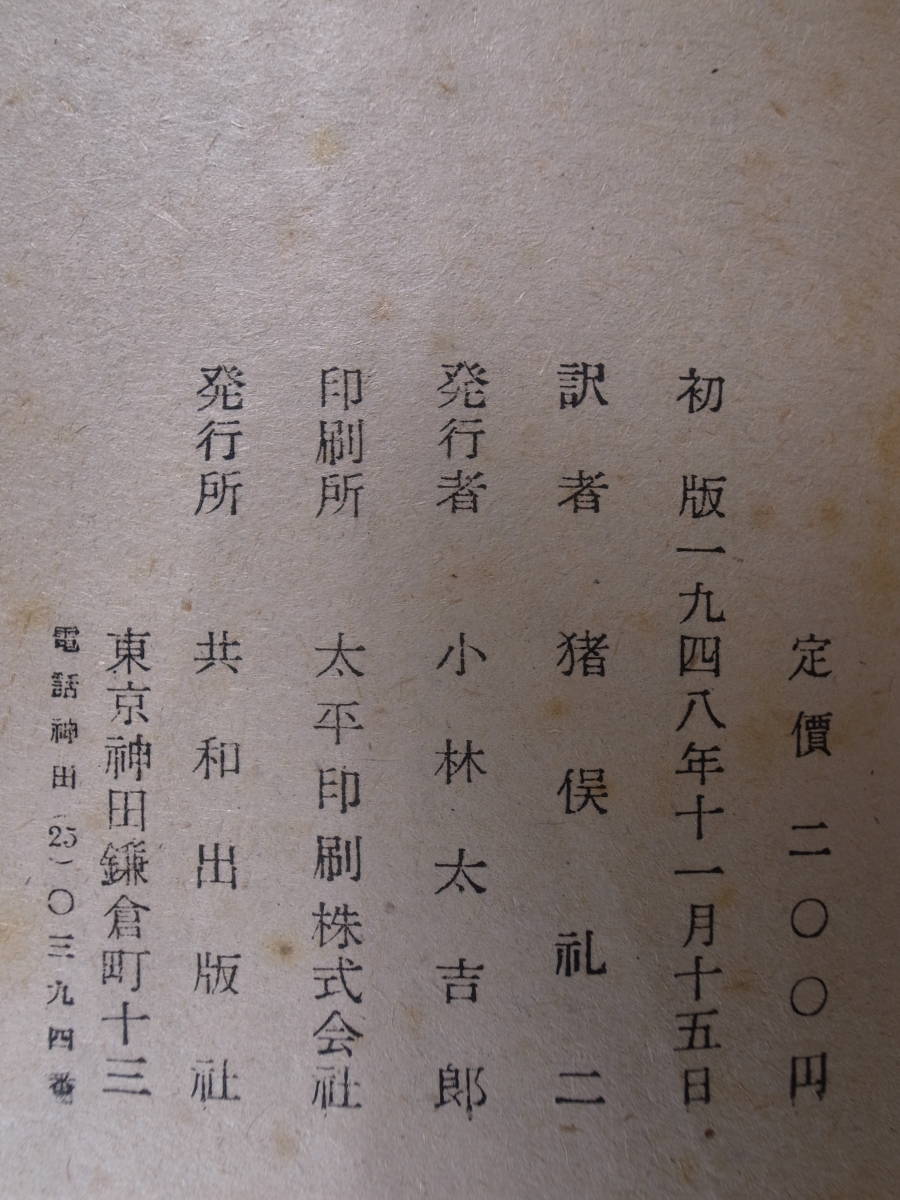 定價二〇〇円
初版一九四八年十一月十五日
訳者 猪俣礼二
発行者 小林太吉郎
印刷所 太平印刷株式会社
発行所 共和出版社
東京神田鎌倉町十三
電話神田(25)〇三九四番